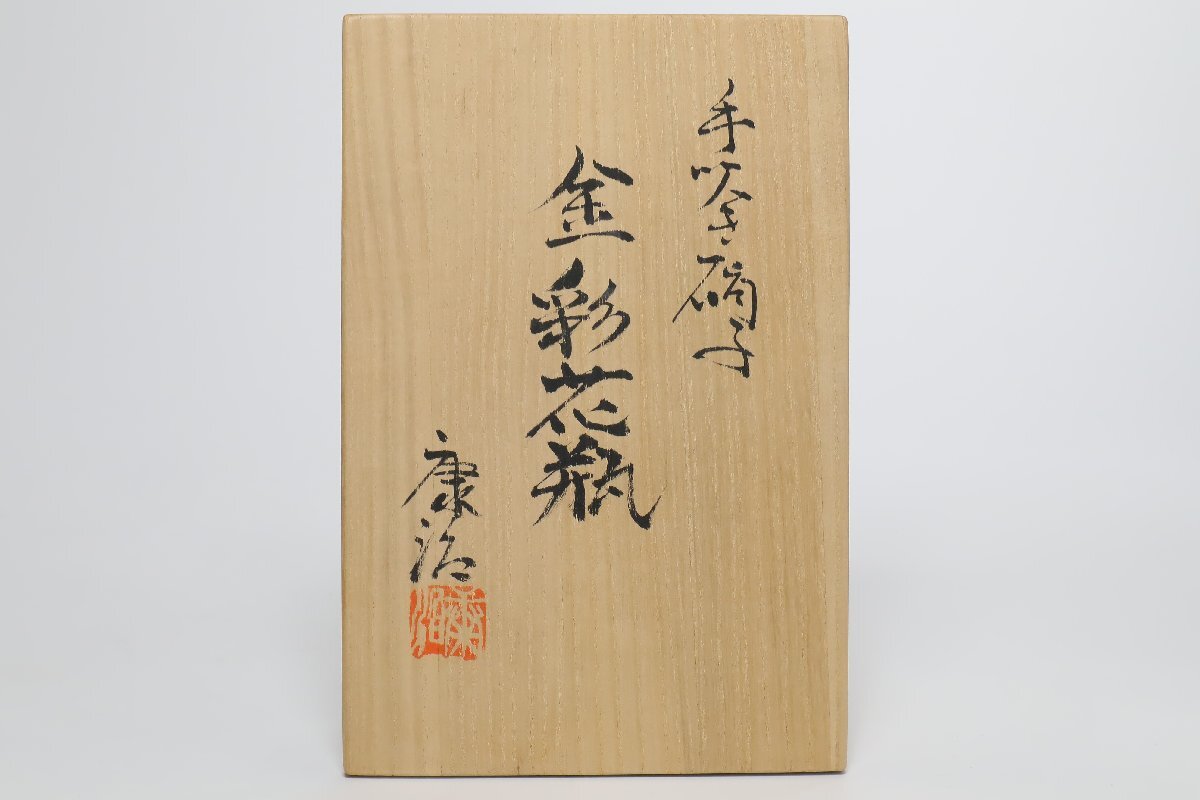 手吹き硝子
金彩花瓶
康治
康治